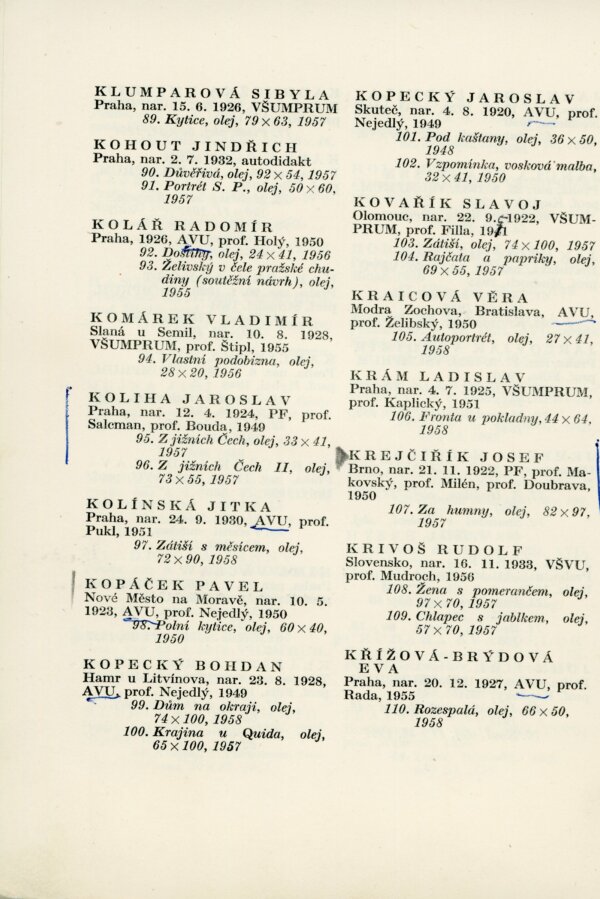 KLUMPAROVÁ SIBYLA
Praha, nar. 15. 6. 1926, VŠUMPRUM
89. Kytice, olej, 79 × 63, 1957
KOHOUT JINDŘICH
Praha, nar. 2. 7. 1932, autodidakt
90. Důvěřivá, olej, 92 × 54, 1957
91. Portrét S. P., olej, 50 × 60,
1957
KOLÁŘ RADOMÍR
Praha, 1926, AVU, prof. Holý, 1950
92. Dostihy, olej, 24 × 41, 1956
93. Želivský v čele pražské chu-
diny (soutěžní návrh), olej,
1955
KOMÁREK VLADIMÍR
Slaná u Semil, nar. 10. 8. 1928,
VŠUMPRUM, prof. Štipl, 1955
94. Vlastní podobizna, olej,
28 × 20, 1956
KOLIHA JAROSLAV
Praha, nar. 12. 4. 1924, PF, prof.
Salcman, prof. Bouda, 1949
95. Z jižních Čech, olej, 33 × 41,
1957
96. Z jižních Čech II, olej,
73 × 55, 1957
KOLÍNSKÁ JITKA
Praha, nar. 24. 9. 1930, AVU, prof.
Pukl, 1951
97. Zátiší s měsícem, olej,
72 × 90, 1958
KOPÁČEK PAVEL
Nové Město na Moravě, nar. 10. 5.
1923, AVU, prof. Nejedlý, 1950
98. Polní kytice, olej, 60 × 40,
1950
KOPECKÝ BOHDAN
Hamr u Litvínova, nar. 23. 8. 1928,
AVU, prof. Nejedlý, 1949
99. Dům na okraji, olej,
74 × 100, 1958
100. Krajina u Quida, olej,
65 × 100, 1957
KOPECKÝ JAROSLAV
Skuteč, nar. 4. 8. 1920, AVU, prof.
Nejedlý, 1949
101. Pod kaštany, olej, 36 × 50,
1948
102. Vzpomínka, vosková malba,
32 × 41, 1950
KOVAŘÍK SLAVOJ
Olomouc, nar. 22. 9. 1922, VŠUM-
PRUM, prof. Filla,
103. Zátiší, olej, 74 × 100, 1957
104. Rajčata a papriky, olej,
69 × 55, 1957
KRAICOVÁ VĚRA
Modra Zochova, Bratislava, AVU,
prof. Želibský, 1950
105. Autoportrét, olej, 27 × 41,
1958
KRÁM LADISLAV
Praha, nar. 4. 7. 1925, VŠUMPRUM,
prof. Kaplický, 1951
106. Fronta u pokladny, 44 × 64,
1958
KREJČIŘÍK JOSEF
Brno, nar. 21. 11. 1922, PF, prof. Ma-
kovský, prof. Milén, prof. Doubrava,
1950
107. Za humny, olej, 82 × 97,
1957
KRIVOŠ RUDOLF
Slovensko, nar. 16. 11. 1933, VŠVU,
prof. Mudroch, 1956
108. Žena s pomerančem, olej,
97 × 70, 1957
109. Chlapec s jablkem, olej,
57 × 70, 1957
KŘÍŽOVÁ-BRÝDOVÁ
EVA
Praha, nar. 20. 12. 1927, AVU, prof.
Rada, 1955
110. Rozespalá, olej, 66 × 50,
1958